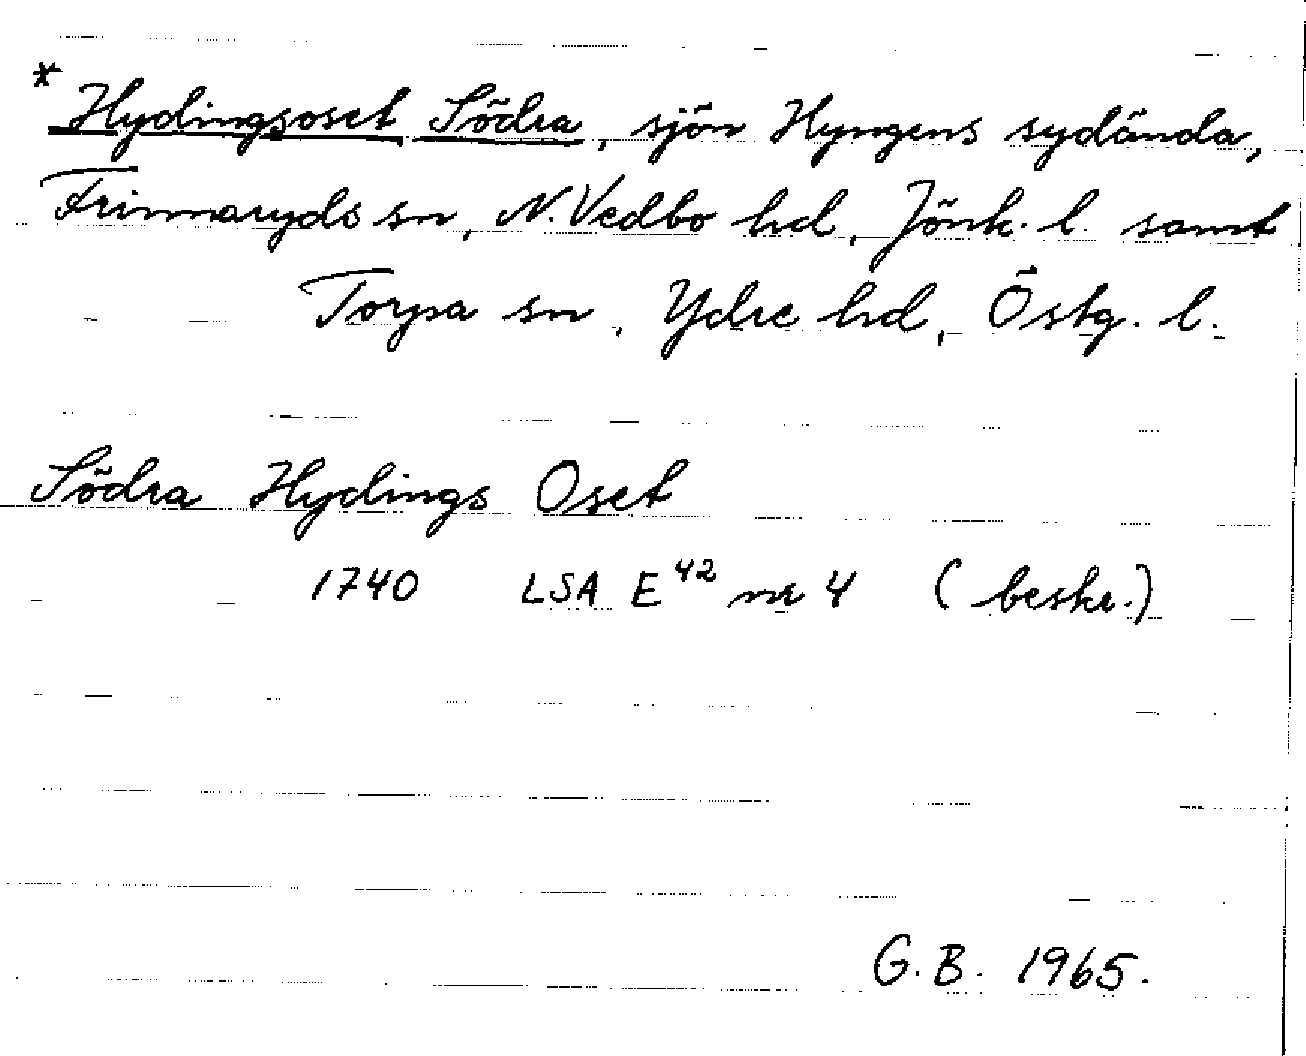 * Hydingsoset Södra, sjön Hyngens sydända,
Frinnaryds sn, N. Vedbo hd, Jönk. l. samt
Torpa sn, Ydre hd, Östg. l.
Södra Hydings Oset
1740 LSA E⁴² nr 4 (beskr.)
G. B. 1965.